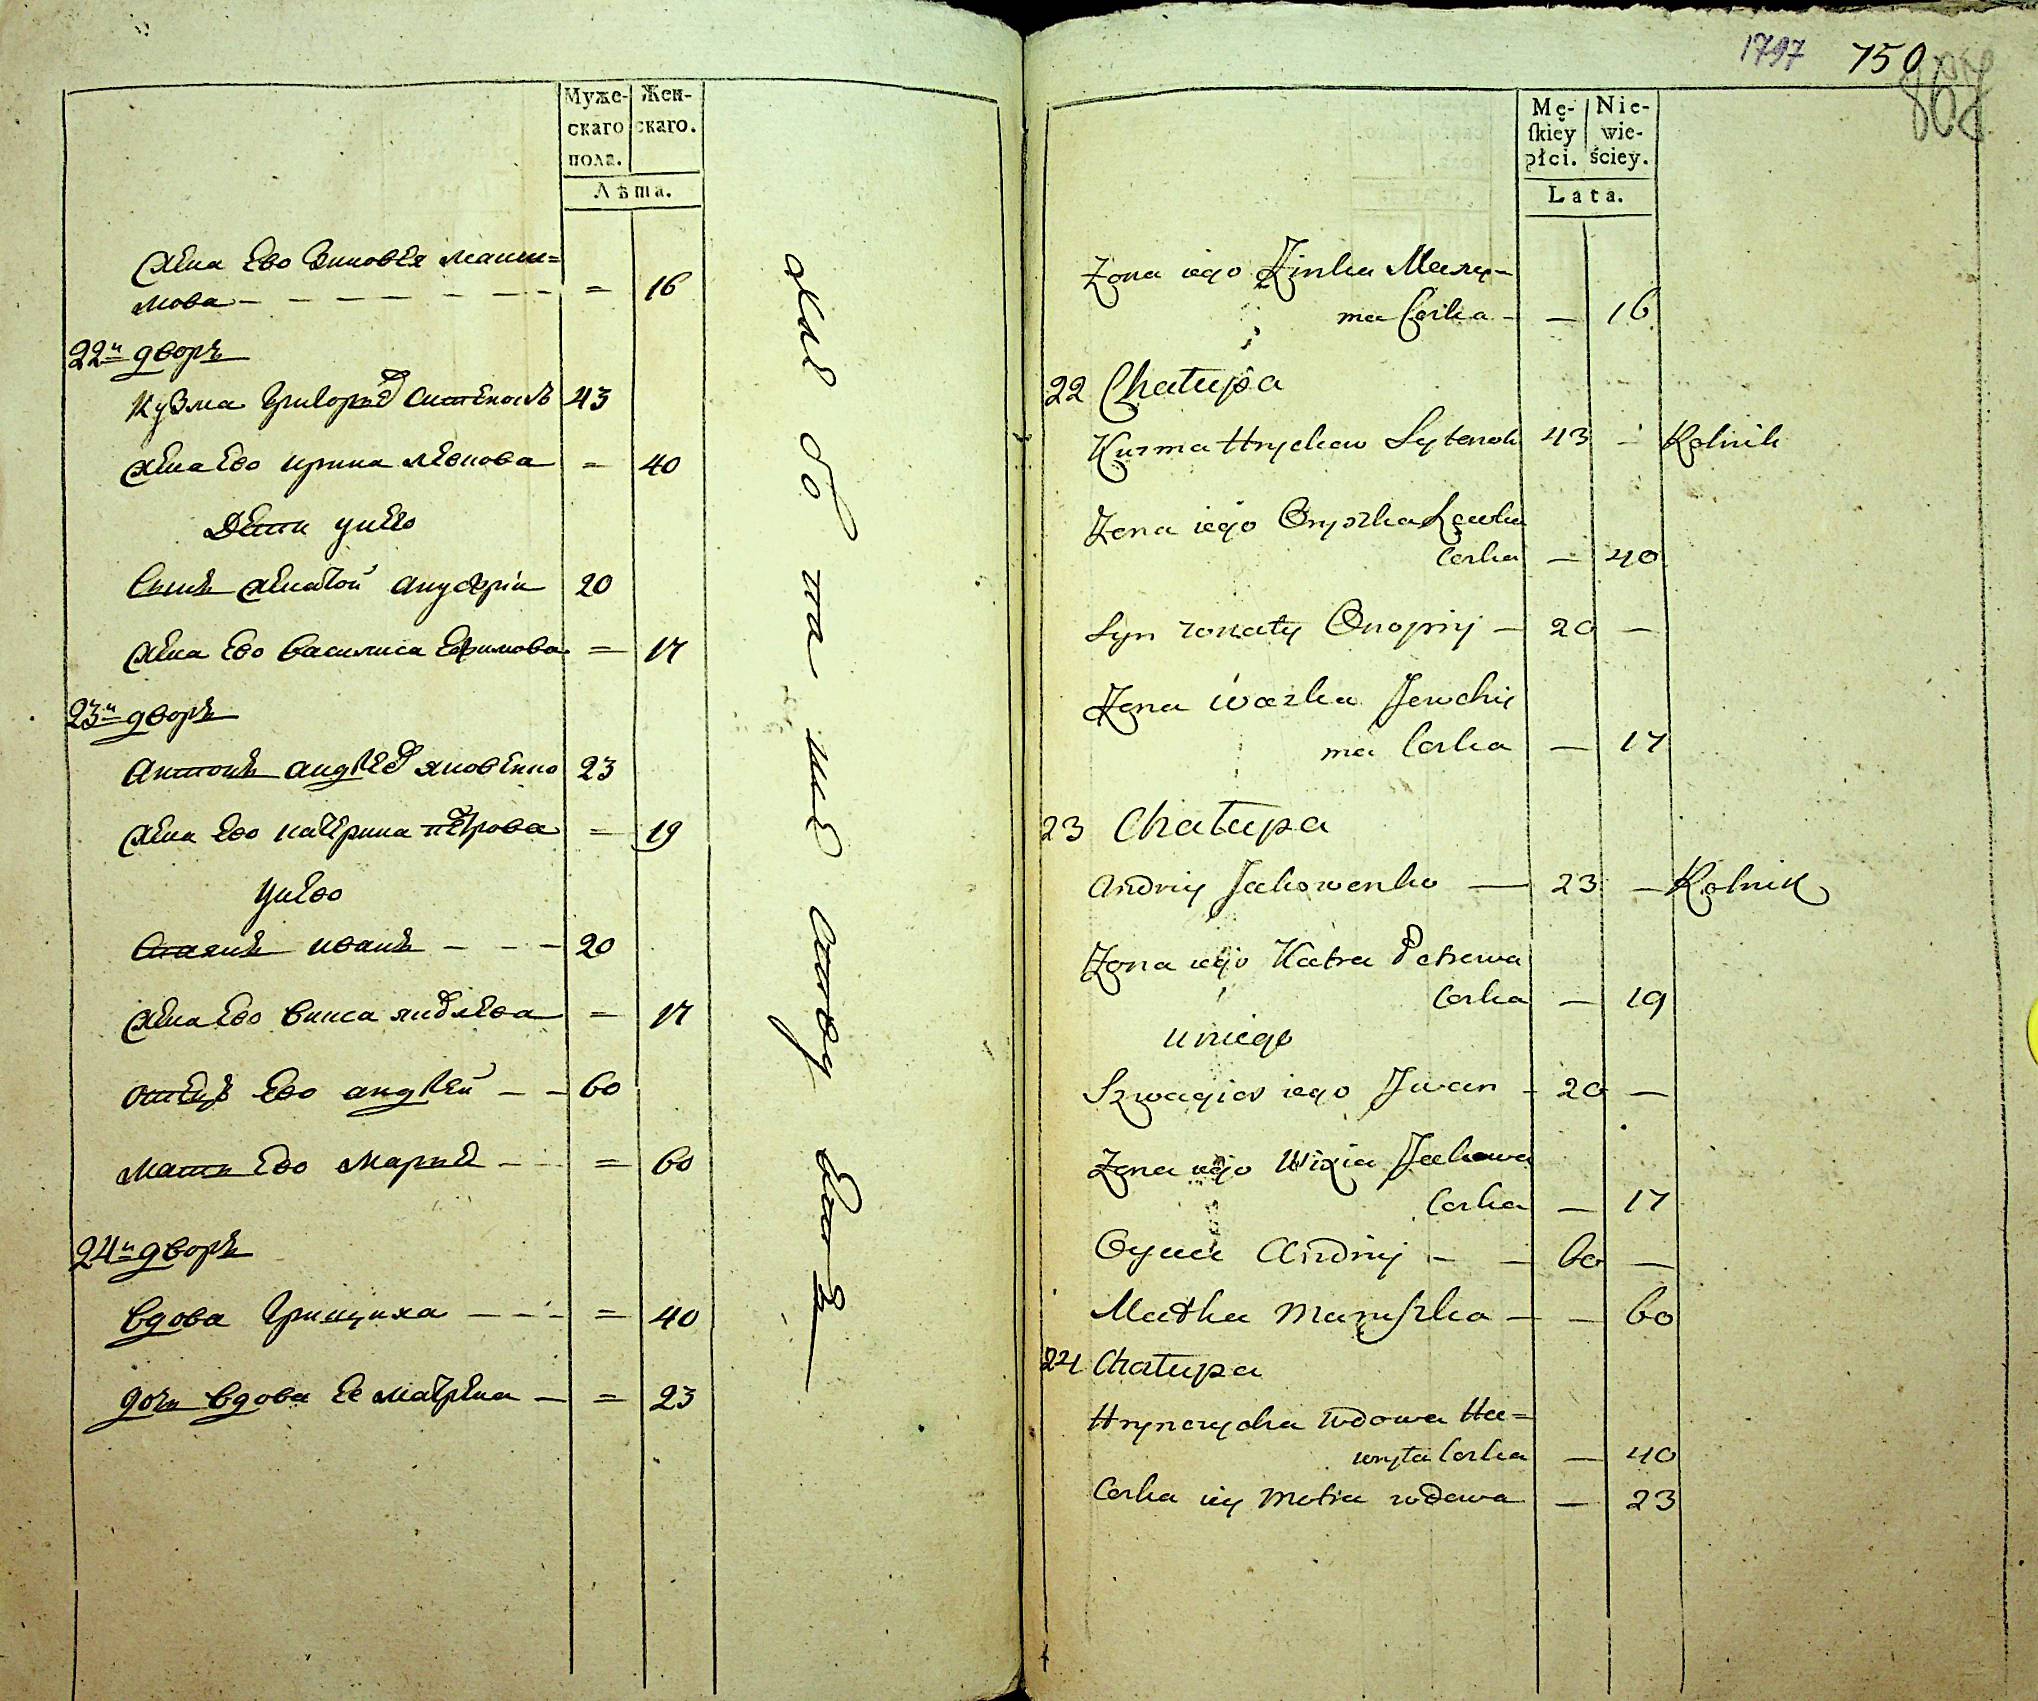 Муже-
скаго
пола.
Жен-
скаго.
Лѣта.
Жена Ево Зиновея Макси=
мова
=
16
22й дворъ
Кузма Григорьев Ситенокъ
43
Жена Ево Ирина Левкова
=
40
Дети у нево
Сынъ женатой Ануфрiи
20
Жена Ево Василиса Ефимова
=
17
23й дворъ
Антонъ Андреев Яковенко
23
Жена Ево Катерина Петрова
=
19
У нево
Иванъ
20
Жена Ево Якавлева
=
17
Отецъ Ево Андрей
60
Мати Ево Мария
=
60
24й дворъ
Вдова Грищиха
=
40
дочь вдова Ее Матрена
=
23
1797 750
868
Mę-
ſkiey
płci.
Nie-
wie-
ściey.
Lata.
Zona iego Zinka Maxy-
ma Corka
16
22 Chałupa
Kuzma Hryckow Sytenok 43 Rolnik
Zona iego Oryszka Lewka
Corka
40
Syn zonaty Onopry 20
Zona Waska Jewchi
ma Corka
17
23 Chałupa
Andriy Jakowenko 23 Rolnik
Zona iego Katra Petrowa
Corka
19
u niego
Szwagier iego Jwan 20
Zona iego Jakowa
Corka
17
Oyciec Andriy 60
Matka Maryszka 60
24 Chałupa
Hrynczycha wdowa Ha=
wryła Corka
40
Corka iey Motra wdowa 23